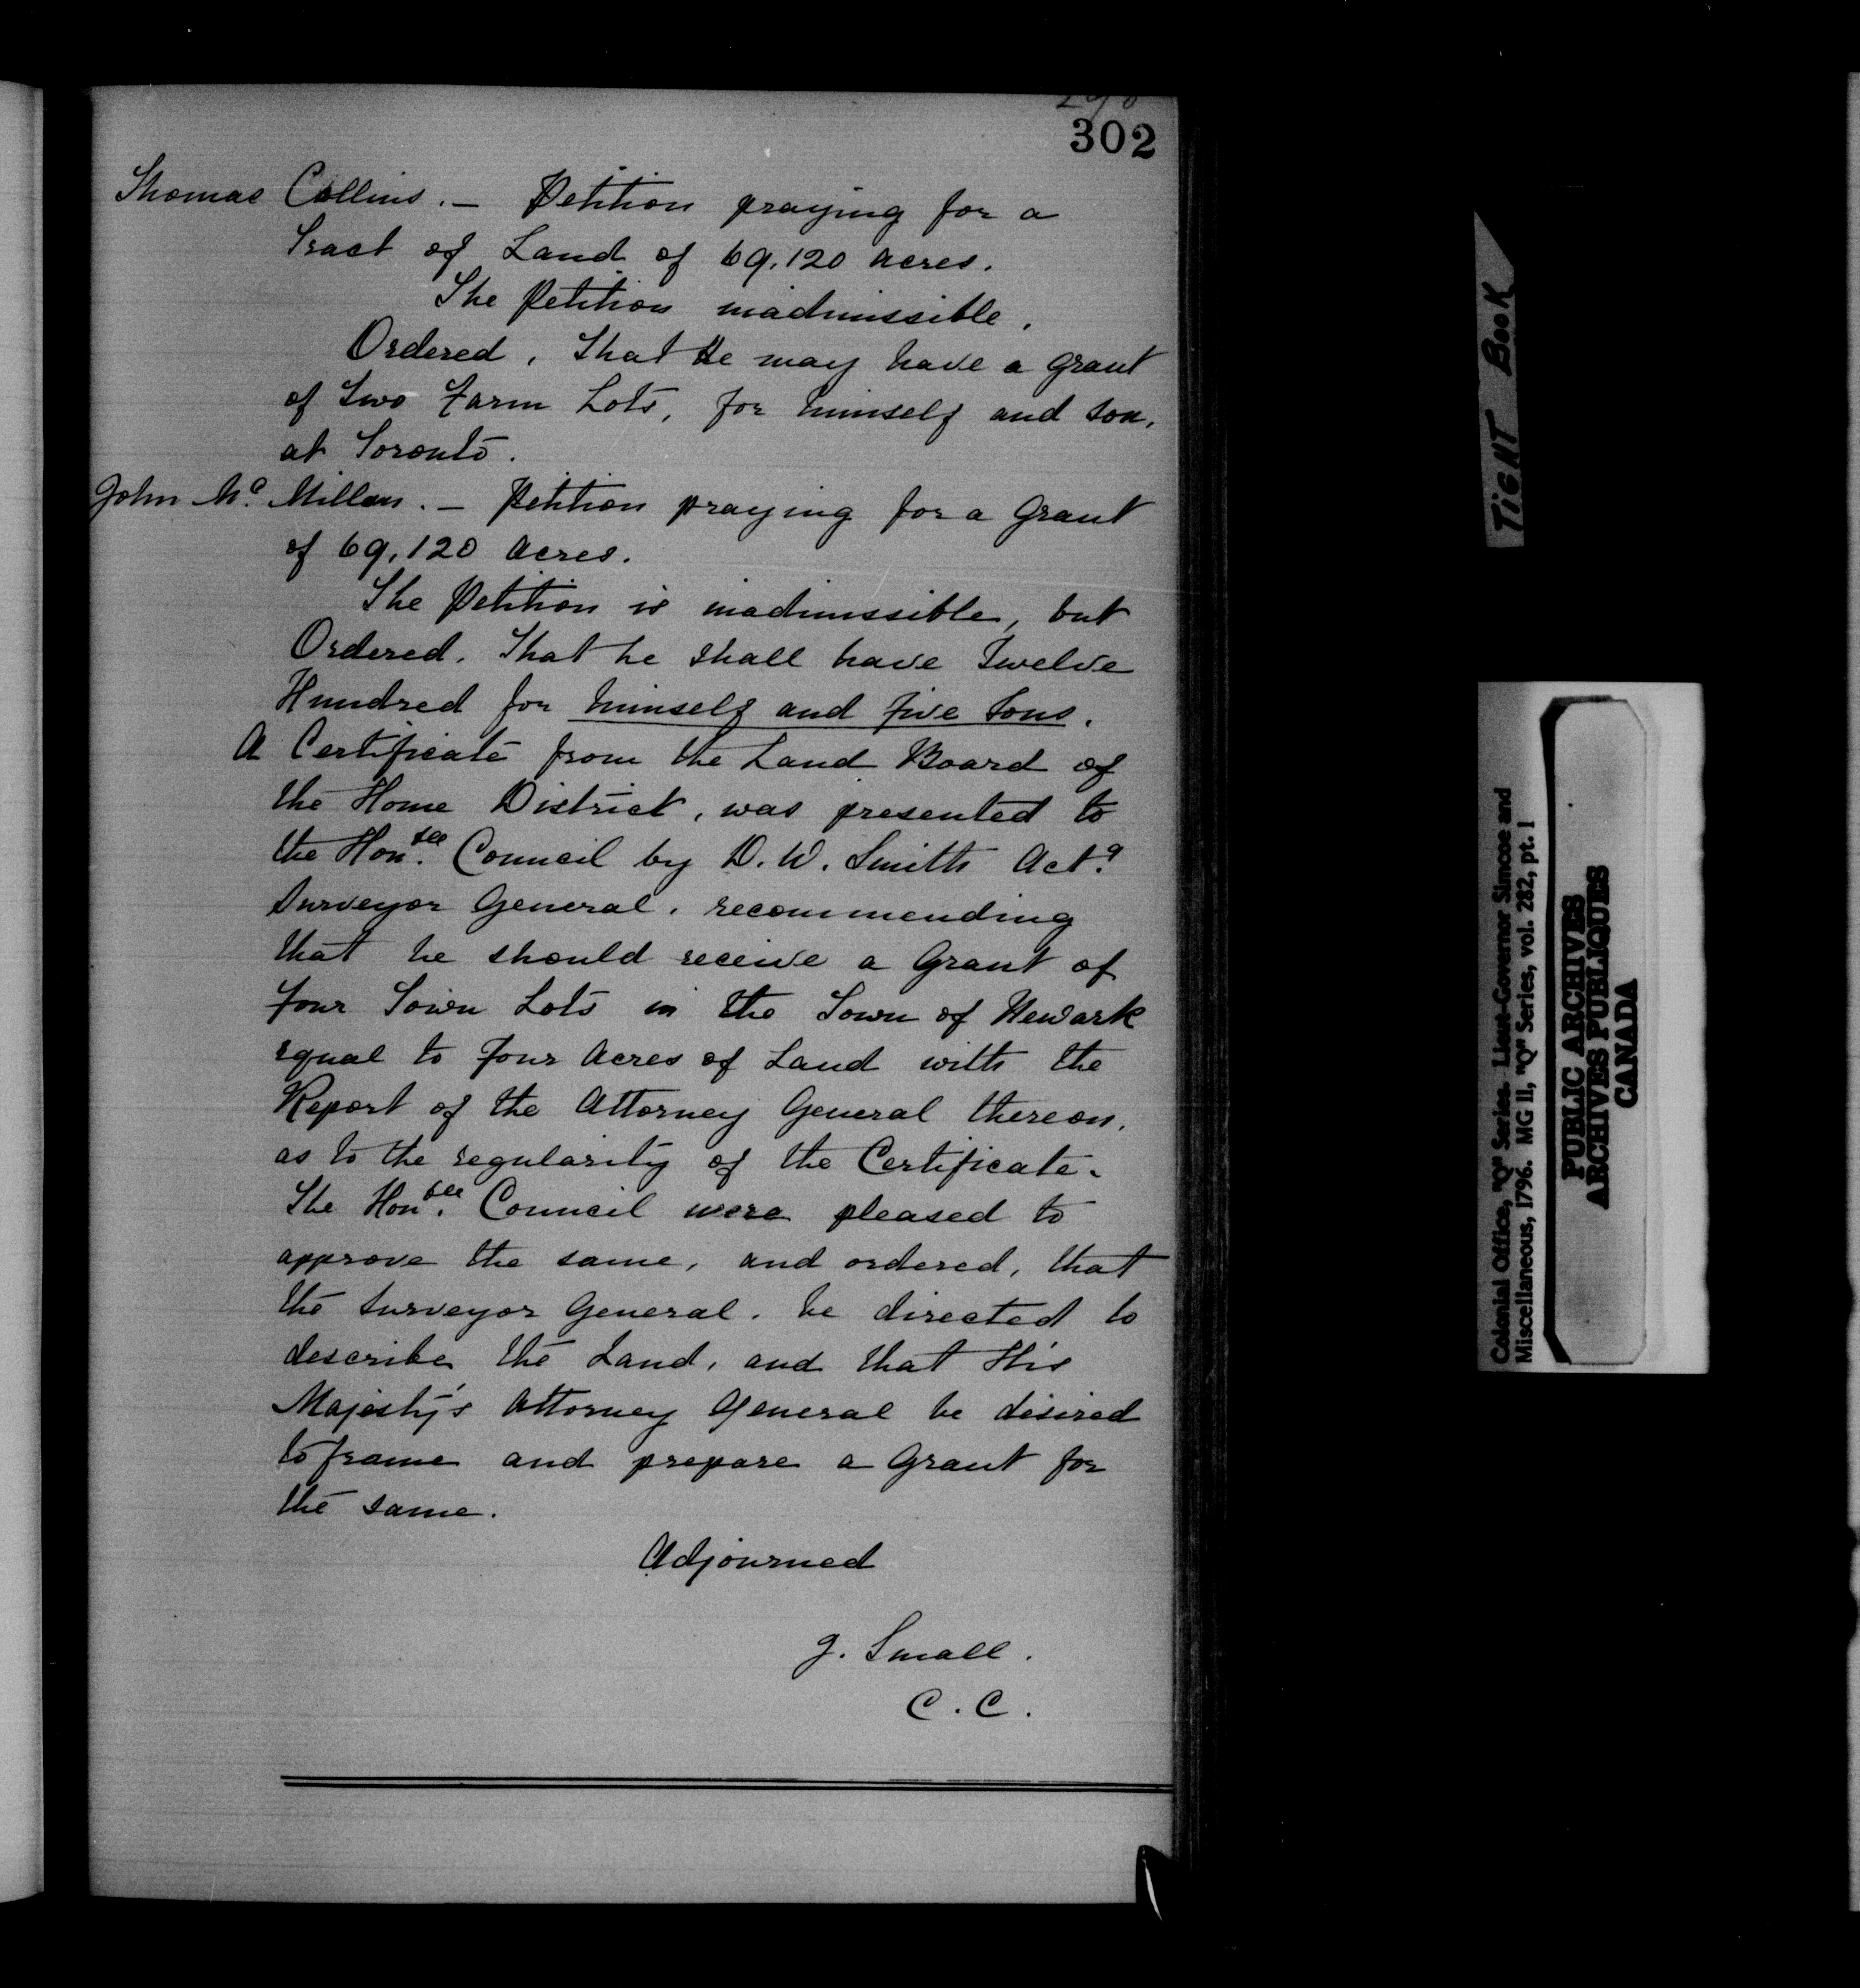 302
Thomas Collins. — Petition praying for a
Tract of Land of 69,120 acres.
The Petition inadmissible.
Ordered, That He may have a grant
of Two Farm Lots, for himself and son,
at Toronto.
John Mc. Millan. — Petition praying for a Grant
of 69,120 acres.
The Petition is inadmissible, but
Ordered. That he shall have Twelve
Hundred for himself and five Sons.
A Certificate from the Land Board of
the Home District, was presented to
the Honble. Council by D. W. Smith Actg.
Surveyor General, recommending
that he should receive a Grant of
four Town Lots in the Town of Newark
equal to four Acres of Land with the
Report of the Attorney General thereon,
as to the regularity of the Certificate.
The Honble. Council were pleased to
approve the same, and ordered, that
the Surveyor General, be directed to
describe the Land, and that His
Majesty's Attorney General be desired
to frame and prepare a Grant for
the same.
Adjourned
J. Small.
C. C.
TIGHT BOOK
Colonial Office, "Q" Series. Lieut-Governor Simcoe and
Miscellaneous, 1796. MG II, "Q" Series, vol. 282, pt. 1
PUBLIC ARCHIVES
ARCHIVES PUBLIQUES
CANADA